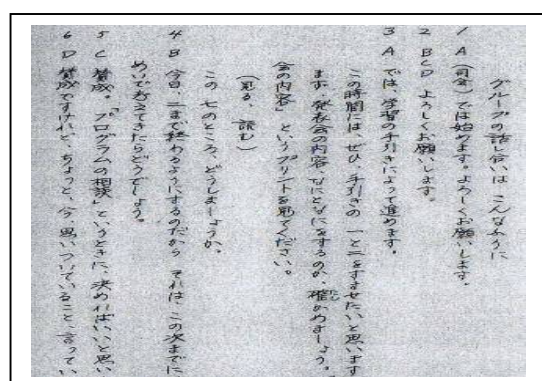 グループの話し合いは こんなふうに
1 A (司会) では始めます。よろしくお願いします。
2 BCD よろしくお願いします。
3 A では、学習の手引きによって進めます。
この時間には、ぜひ、手引きの 一と二をすませたいと思います
まず、発表会の内容、なにとなにをするのか、確かめましょう。
会の内容」 というプリントを見てください。
(見る、読む)
この 七のところ、どうしましょうか。
4 B 今日、二まで終わるようにするのだから それは、この次までに、
めいめいで考えてきたらどうでしょう。
5 C 賛成。「プログラムの相談」というときに、決めればいいと思い
6 D 賛成ですけれど、ちょっと、今、思いついていること、言ってい